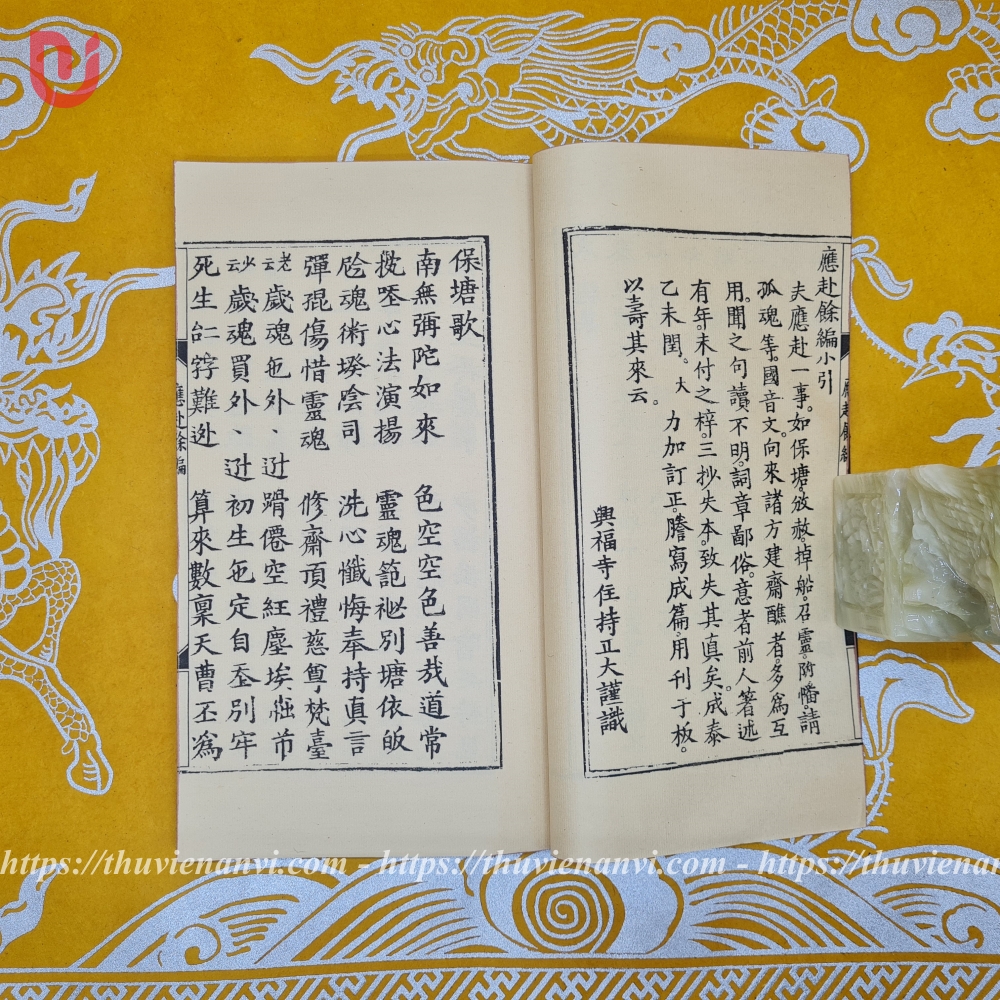 應赴餘編小引
夫應赴一事。如保塘。放赦。掉船。召靈。附旛。請
孤魂等。國音文。向來諸方建齋醮者。多爲互
用。聞之句讀不明。詞章鄙俗。意者前人著述
有年。未付之梓。三抄失本。致失其真矣。成泰
乙未閏。大 力加訂正。謄寫成篇。用刊于板。
以壽其來云。
興福寺住持正大謹識
保塘歌
南無彌陀如來 色空空色善哉道常
救 心法演揚 靈魂範 別塘依皈
魂術揆陰司 洗心懺悔奉持真言
彈 傷惜靈魂 修齋頂禮慈尊梵臺
老云歲魂 外、 僊空紅塵埃 芇
少云歲魂買外、 初生 定自 別牢
死生 難 算來數稟天曹丕爲
應赴餘編
https://thuvienanvi.com - https://thuvienanvi.com - https://thuvienan